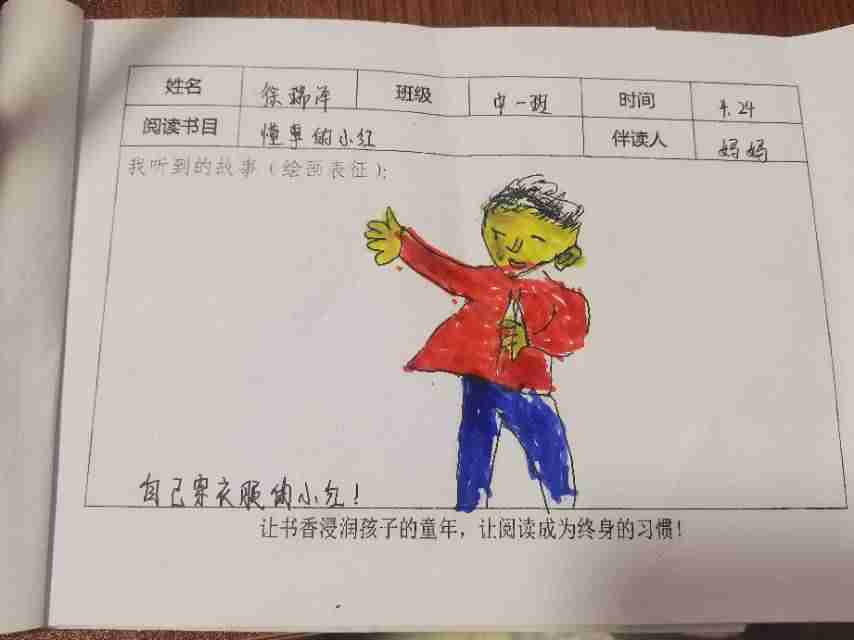 姓名 徐瑞泽 班级 中一班 时间 4.24
阅读书目 懂事的小红 伴读人 妈妈
我听到的故事（绘画表征）:
自己穿衣服的小红!
让书香浸润孩子的童年，让阅读成为终身的习惯!